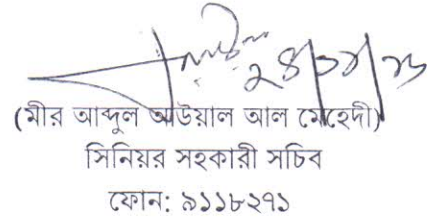 (মীর আব্দুল আউয়াল আল মেহেদী)
সিনিয়র সহকারী সচিব
ফোন: ৯১১৮২৭১